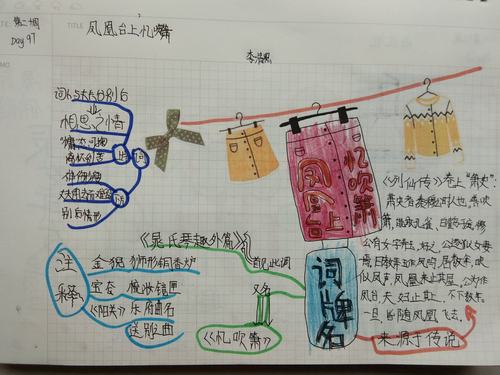 第二期
Day 97
TITLE
凤凰台上忆吹箫
李清照
词人与丈夫分别后
相思之情
上
词
下
别后情形
忆吹箫
凤凰台上
《列仙传》卷上"萧史":
萧史者,秦穆公时人也,善吹
箫,能致孔雀、白鹤于庭,穆
公有女字弄玉,好之,公遂以女妻
焉,日教弄玉作凤鸣,居数年,吹
似凤声,凤凰来止其屋,公为作
凤台,夫妇止其上,不下数年,
一旦,皆随凤凰飞去。
来源于传说
《晁氏琴趣外篇》
首见此调
又名
《忆吹箫》
词牌名
注释
金猊 狮形铜香炉
宝奁 梳妆镜匣
《阳关》乐府曲名
送别曲